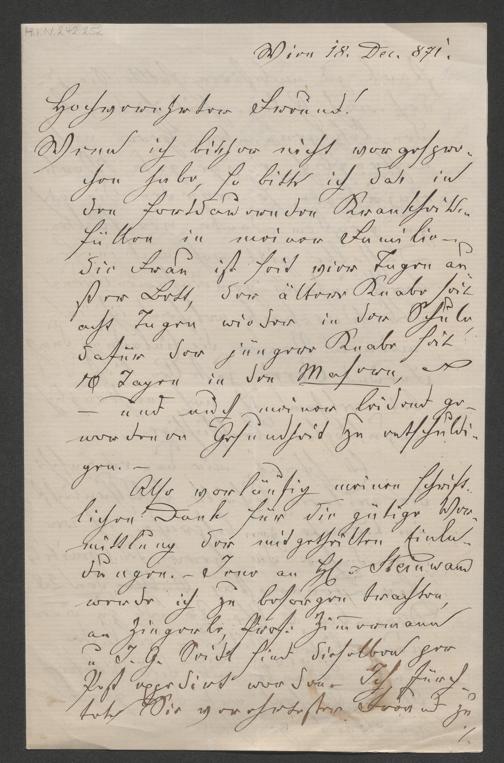 H.I.N. 242.252
Wien 18. Dec. 871.
Hochverehrter Freund!
Wenn ich bisher nicht vorgespro-
chen habe, so bitte ich das in
den fortdauernden Krankheits-
fällen in meiner Familie –
die Frau ist seit vier Tagen au-
ßer Bett, der ältere Knabe seit
acht Tagen wieder in der Schule,
dafür der jüngere Knabe seit
10 Tagen in den Masern,
– und auch meiner leidend ge-
wordenen Gesundheit zu entschuldi-
gen. –
Also vorläufig meinen schrift-
lichen Dank für die gütige Ver-
mittlung der mitgetheilten Einla-
dungen. – Jene an H. Steinwand
werde ich zu besorgen trachten,
an Zingerle, Prof. Zimmermann
u J. G. Seidl sind dieselben per
Post expedirt worden. Ich fürch-
tete Sie verehrtester Freund zu
./.